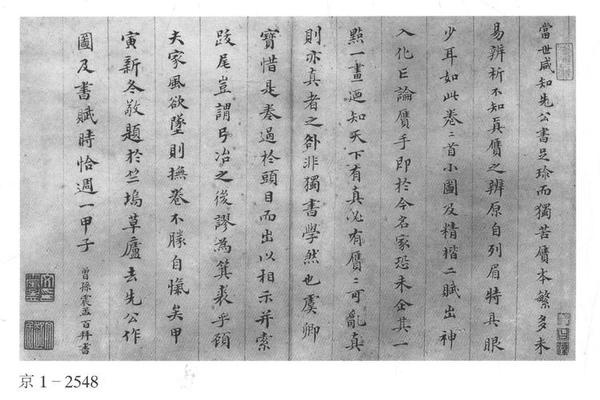 當世咸知先公書足珍而獨苦贗本繁多未
易辨析不知真贗之辨原自列眉特具眼
少耳如此卷〻首小圖及精楷二賦出神
入化叵論贗手即於今名家恐未企其一
點一畫迺知天下有真必有贗〻可亂真
則亦真者之咎非獨書學然也虞卿
寶惜是卷過於頭目而出以相示并索
跋尾豈謂弓冶之後謬為箕裘乎顧
夫家風欲墜則撫卷不勝自愾矣甲
寅新冬敬題於竺塢草廬去先公作
圖及書賦時恰週一甲子
曾孫震孟百拜書
京1-2548